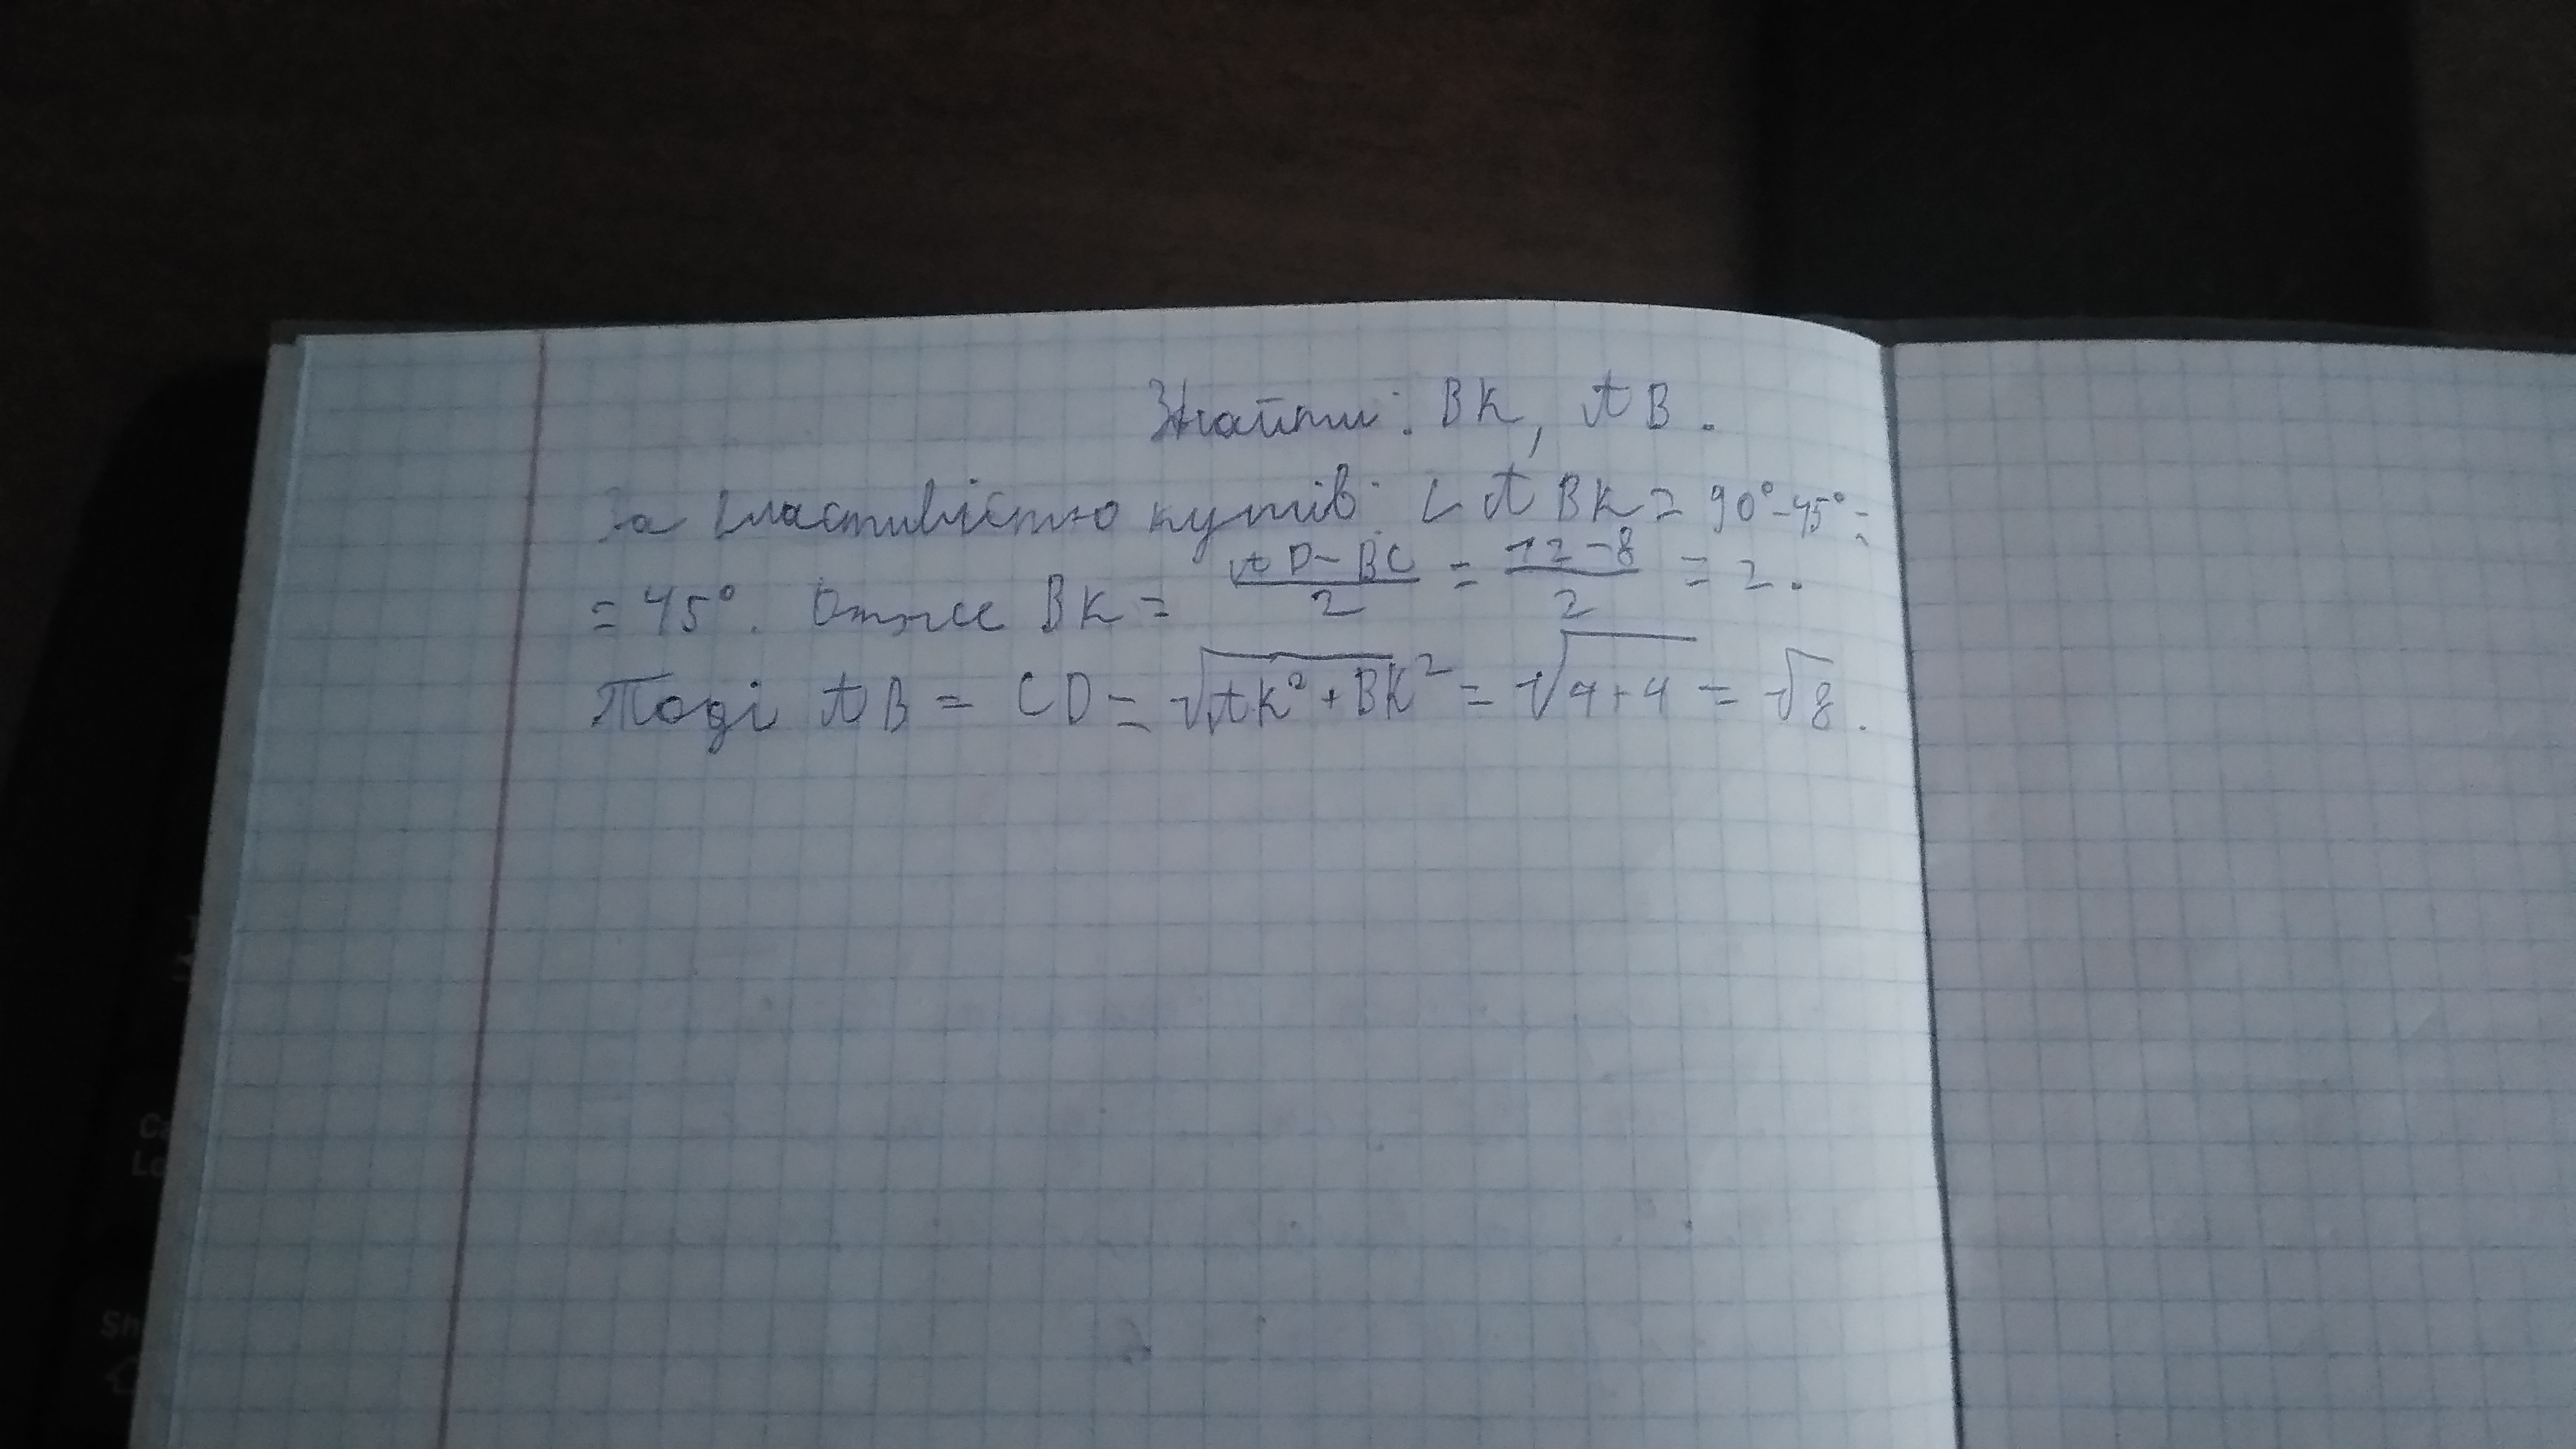 Знайти: BK, AB.
За властивістю кутів: ∠ABK = 90° - 45° =
= 45°. Отже BK = \frac{AD - BC}{2} = \frac{12 - 8}{2} = 2.
Тоді AB = CD = \sqrt{AK² + BK²} = \sqrt{4 + 4} = \sqrt{8}.
Ca
Lo
Sh